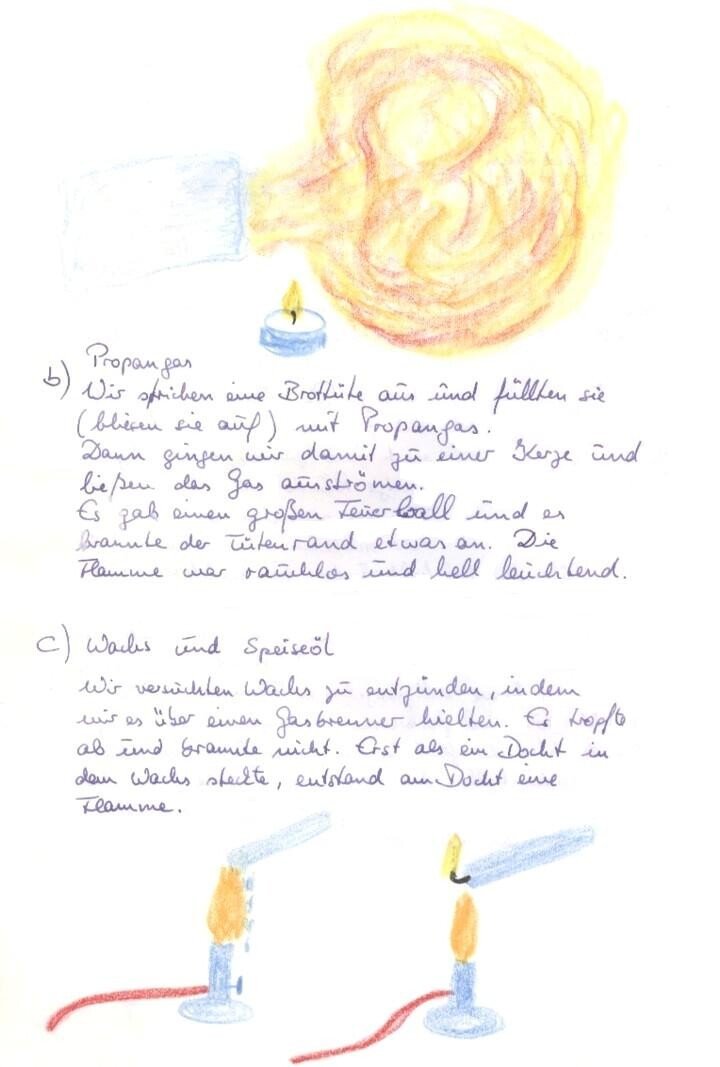 b) Propangas
Wir strichen eine Brottüte aus und füllten sie
(bliesen sie auf) mit Propangas.
Dann gingen wir damit zu einer Kerze und
ließen das Gas ausströmen.
Es gab einen großen Feuerball und es
brannte der Tütenrand etwas an. Die
Flamme war rauchlos und hell leuchtend.
c) Wachs und Speiseöl
Wir versuchten Wachs zu entzünden, indem
wir es über einen Gasbrenner hielten. Es tropfte
ab und brannte nicht. Erst als ein Docht in
dem Wachs steckte, entstand am Docht eine
Flamme.